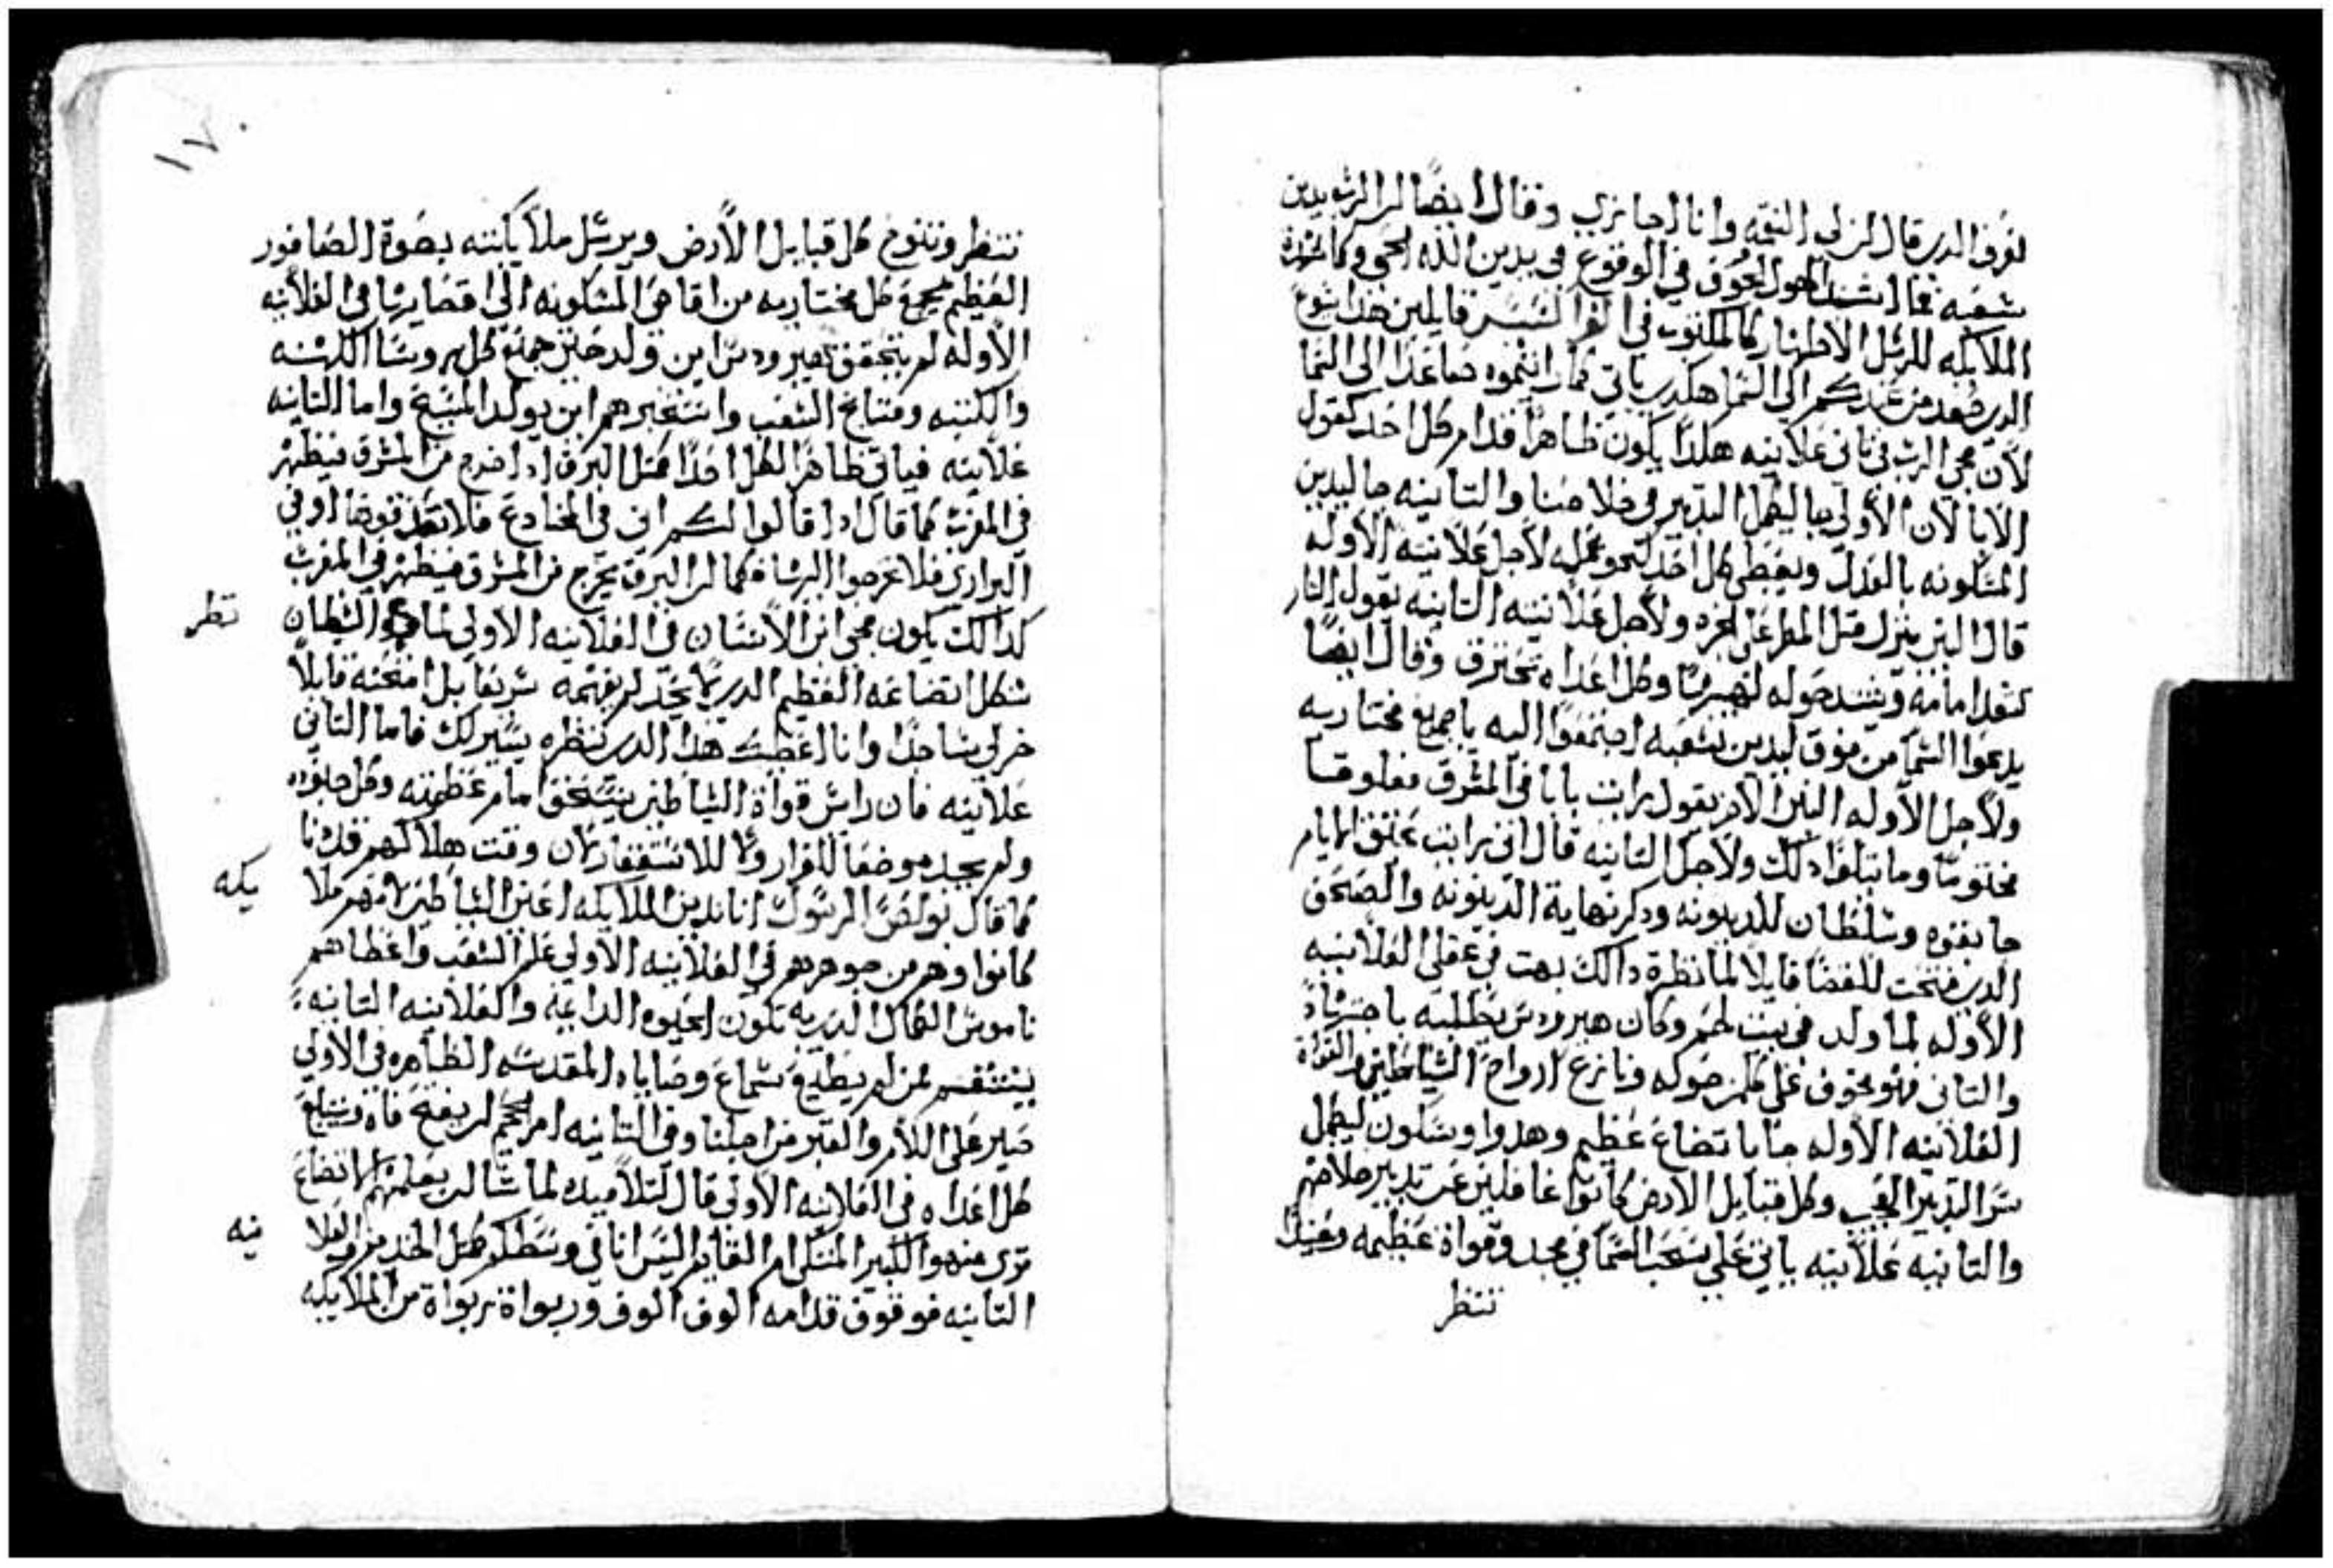 نعرف الدي قال ان لي النقمه وانا اجازي وقال ايضًا ان الرب يدين
شعبه فما اشد الهول المخوف في الوقوع في يدين الله الحي وكما
الملايكه للرسل الاطهار كالمكتوب في قايلين هدا يسوع
الدي صعد من عندكم الي السما هكدي ياتي كما رايتموه صاعدًا الي السما
لأن مجي الرب في تاني علانيه هكدا يكون ظاهرًا قدام كل احد كقول
الابا لأن الأولي جا ليكمل التدبير في خلاصنا والتانيه جا ليدين
المسكونه بالعدل ويعطي كل احد نحو عمله لأجل علانيته الأوله
قال النبي ينزل متل المطر علي الجزه ولأجل علانيته التانيه يقول النار
تتقد امامه وتشتد حوله لهيبًا وكل اعداه تحترق وقال ايضًا
يدعوا السما من فوق ليدين شعبه اجتمعوا اليه يا جميع مختاريه
ولأجل الأوله النبي الأخر يقول رايت بابا في المشرق مغلوقا
مختومًا وما يتلوا دلك ولأجل التانيه قال اني رايت عتيق الايام
جا بقوه وسلطان للدينونه ودكر نهاية الدينونه والصحف
الدي فتحت للقضا قايلًا لما نظرة دالك بهت في عقلي العلانيه
الأوله لما ولد في بيت لحم وكان هيرودس يطلبه باجتهاد
والتاني فهو مخوف علي كلمن حوله ونازع ارواح الشياطين والقواة
العلانيه الأوله جا باتضاع عظيم وهدوا وسكون ليكمل
سر التدبير العجيب وكل قبايل الارض كانوا غافلين عن تدبير خلاصهم
والتانيه علانيه ياتي علي سحب السما في مجد وقواة عظيمه وعيدًا
تنتظر
١٧٠
تنتظر وتنوح كل قبايل الأرض ويرسل ملأيكته بصوة الصافور
العظيم يجمع كل مختاريه من اقاصي المسكونه الي اقصايها في العلانيه
الأوله لم يتحقق هيرودس اين ولد حتي جمع كل روسا الكهنه
والكتبه ومشايخ الشعب واستخبرهم اين يولد المسيح واما التانيه
علانيه فياتي ظاهرًا لكل احدًا متل البرق ادا خرج من المشرق فيظهر
في المغرب كما قال ادا قالوا لكم اني في المخادع فلا تصدقوهم او في
البراري فلا تخرجوا البشاه كما ان البرق يخرج من المشرق فيظهر في المغرب
كدالك يكون مجي ابن الأنسان في العلانيه الأولي الشيطان
تطر
شكل اتضاعه العظيم الدي لم يفهمه تم تقابل امتحنه قايلًا
خر لي ساجدًا وانا اعطيك هدا الدي تنظره يسير لك فاما التاني
علانيه فان راس قواة الشياطين يتسحق امام عظمته وكل جنوده
ولم يجد موضعًا للفرار ولا للاستغفار لأن وقت هلاكهم قد نا
كما قال بولص الرسول اننا ندين الملايكه اعني الشياطين انهم ملا
يكه
كانوا وهم من جوهرهم في العلانيه الأولي علم الشعب واعطاهم
ناموس الكمال الدي به تكون الحيوه الدايمه والعلانيه التانيه
ينتقم لمن لم يطيع سماع وصاياه المقدسه الظاهره في الأولي
صبر علي اللام والقبر من اجلنا وفي التانيه امر الجحيم ان يفتح فاه ويبتلع
كل اعداه في العلانيه الأولي قال لتلاميده لما سالن يعلمهم الاتضاع
تري من هو الكبير المتكي ام القايم اليس اناني وسطكم متل الخدم وفي العلا
نيه
التانيه فوقوف قدامه الوف الوف وربواة ربواة من الملايكه